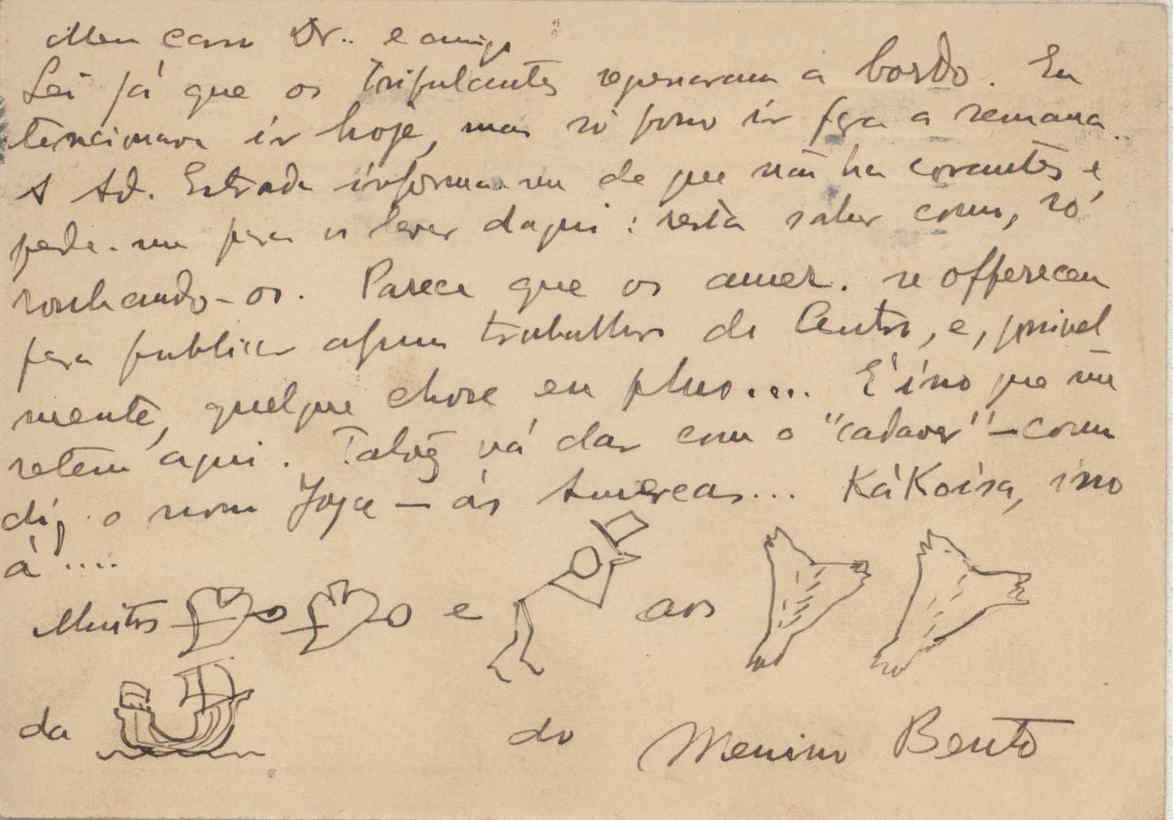 Meu caro Dr. e amigo
Sei já que os tripulantes regressaram a bordo. Eu
tencionava ir hoje, mas só posso ir pra a semana.
A Ad. Estrada informa-me de que não ha corantes e
pede-me para os levar daqui: resta saber como, só
roubando-os. Parece que os amer. se offerecem
para publicar algum trabalho do Centro, e, possivel
mente, quelque chose en plus.... É isso que me
retem aqui. Talvez vá dar com o "cadaver" — como
diz o nosso — ás Americas... KáKoisa, isso
á....
Muitos e aos
da do Menino Bento